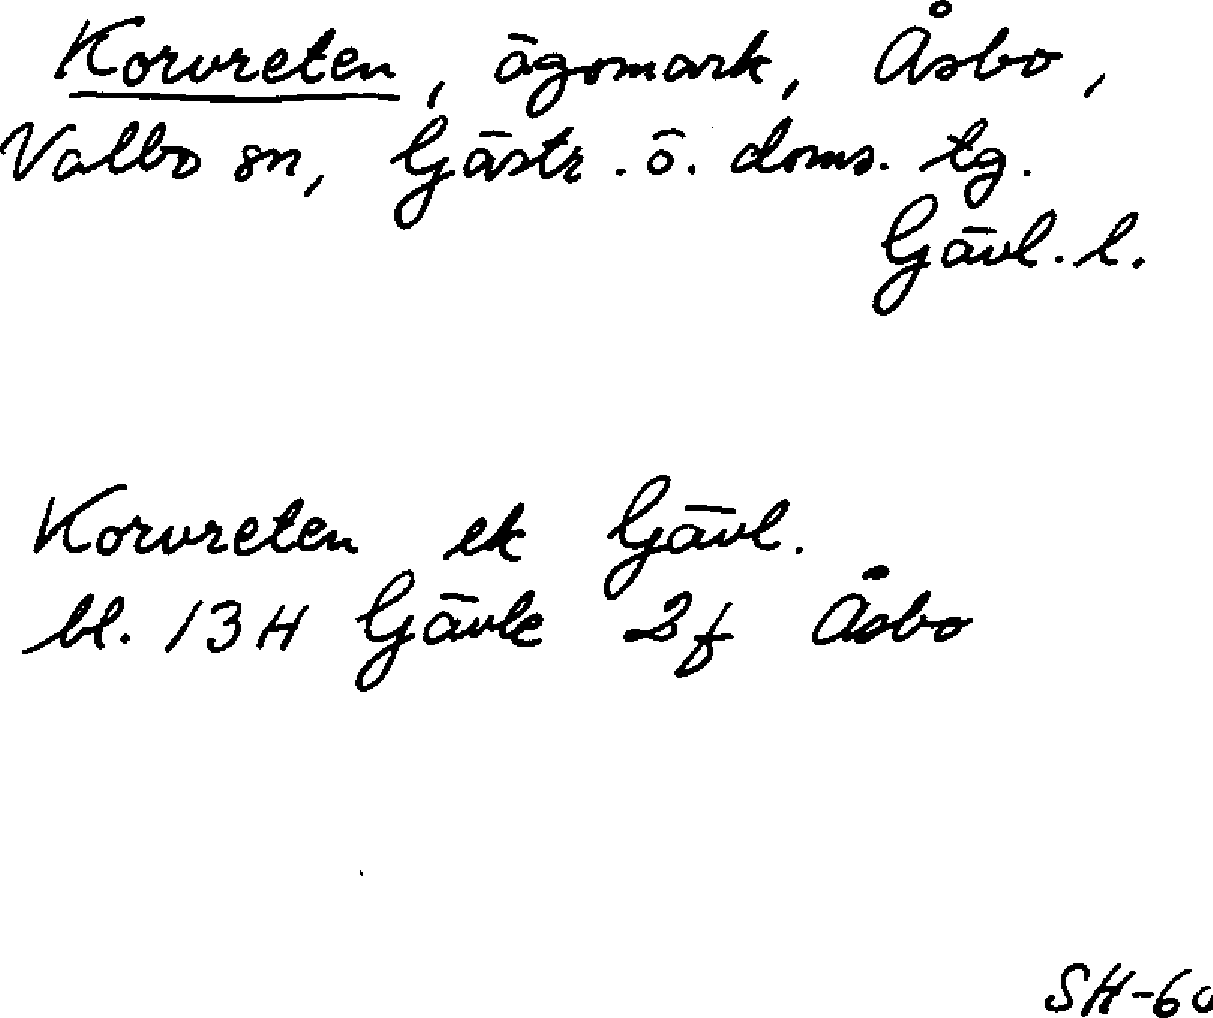 Korvreten, ägomark, Åsbo,
Valbo sn, Gästr. ö. doms. tg.
Gävl. l.
Korvreten ek Gävl.
bl. 13H Gävle 2f Åsbo
SH-60